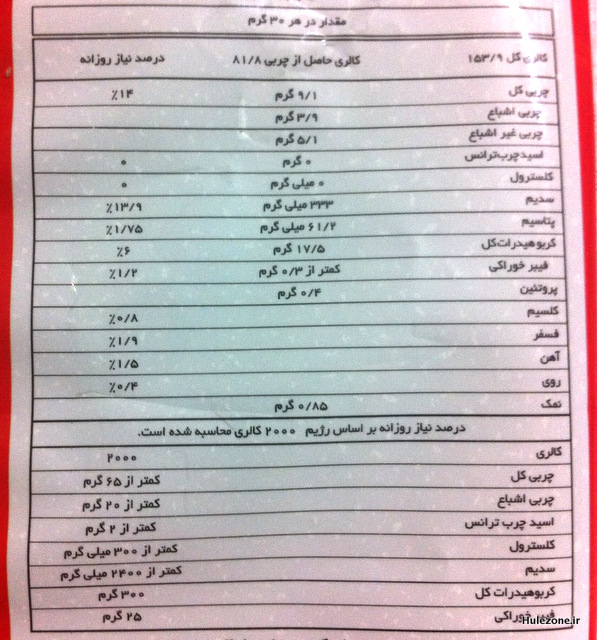 مقدار در هر ۳۰ گرم
کالری کل ۱۵۳/۹ کالری حاصل از چربی ۸۱/۸ درصد نیاز روزانه
چربی کل ۹/۱ گرم ٪۱۴
چربی اشباع ۳/۹ گرم
چربی غیر اشباع ۵/۱ گرم
اسیدچرب‌ترانس ۰ گرم ۰
کلسترول ۰ میلی گرم ۰
سدیم ۳۳۳ میلی گرم ٪۱۳/۹
پتاسیم ۶۱/۲ میلی گرم ٪۱/۷۵
کربوهیدرات‌کل ۱۷/۵ گرم ٪۶
فیبر خوراکی کمتر از ۰/۳ گرم ٪۱/۲
پروتئین ۰/۴ گرم
کلسیم ٪۰/۸
فسفر ٪۱/۹
آهن ٪۱/۵
روی ٪۰/۴
نمک ۰/۸۵ گرم
درصد نیاز روزانه بر اساس رژیم ۲۰۰۰ کالری محاسبه شده است.
کالری ۲۰۰۰
چربی کل کمتر از ۶۵ گرم
چربی اشباع کمتر از ۲۰ گرم
اسید چرب ترانس کمتر از ۲ گرم
کلسترول کمتر از ۳۰۰ میلی گرم
سدیم کمتر از ۲۴۰۰ میلی گرم
کربوهیدرات کل ۳۰۰ گرم
فیبر خوراکی ۲۵ گرم
Hulezone.ir